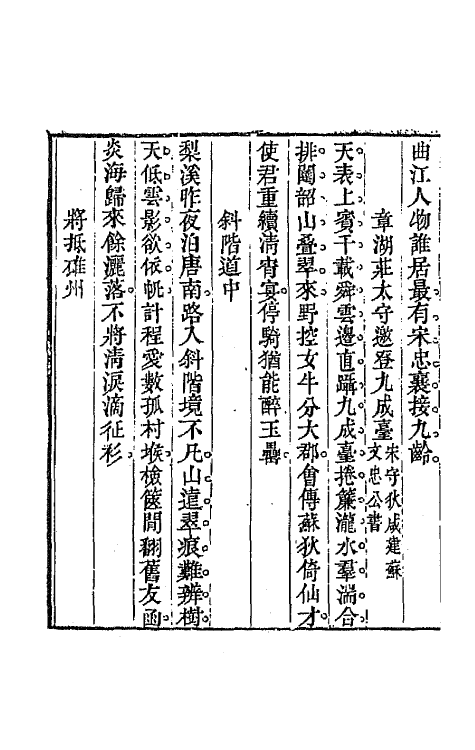 曲江人物誰居最有宋忠襄接九齡
章湖莊太守邀登九成臺宋守狄咸建蘇文忠公書
天表上賓千載舜雲邊直躡九成臺捲簾瀧水羣湍合
排闥韶山叠翠來野控女牛分大郡會傳蘇狄倚仙才
使君重續清宵宴停騎猶能醉玉罍
斜階道中
梨溪昨夜泊唐南路入斜階境不凡山遠翠痕難辨樹
天低雲影欲依帆計程愛數孤村堠檢篋間翻舊友函
炎海歸來餘灑落不將清淚滴征衫
將抵雄州